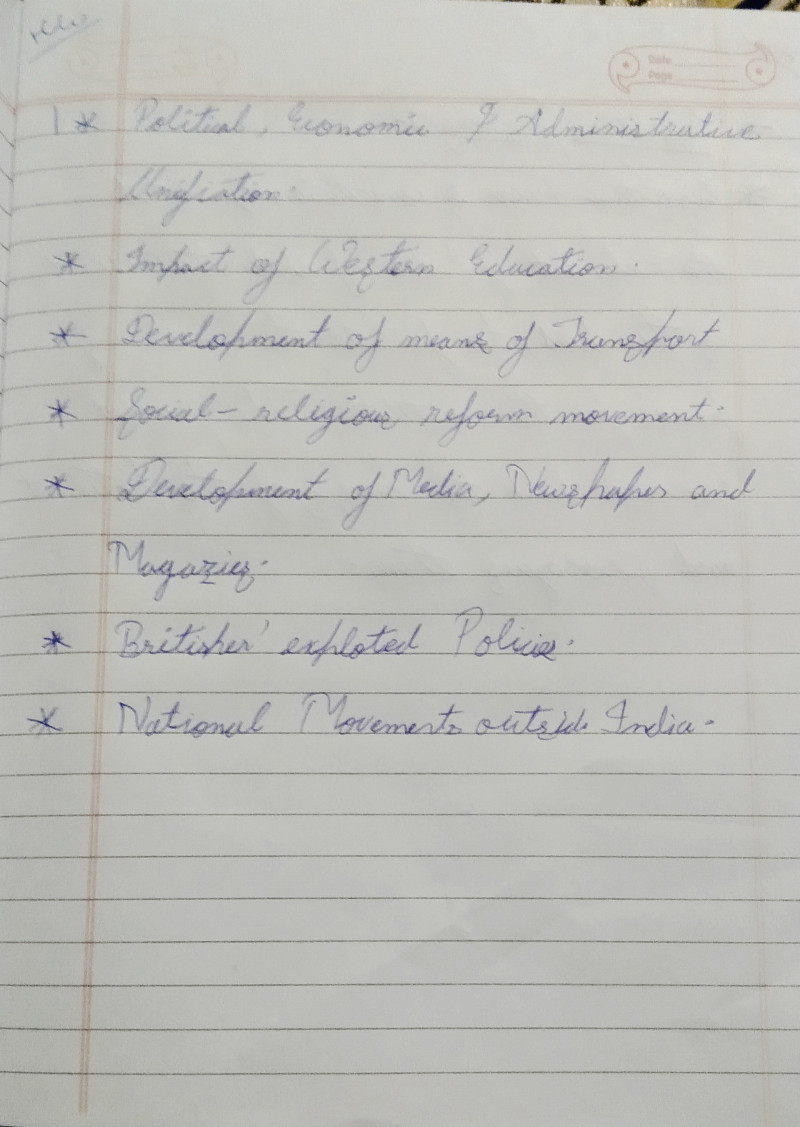 Date
Page
1 * Political, Economic & Administrative
Unifiation.
* Impact of Western Education.
* Development of means of Transport
* Social - religious reform movement.
* Development of Media, Newspapes and
Magazies.
* Britisher' exploted Policie.
* National Movements outside India.